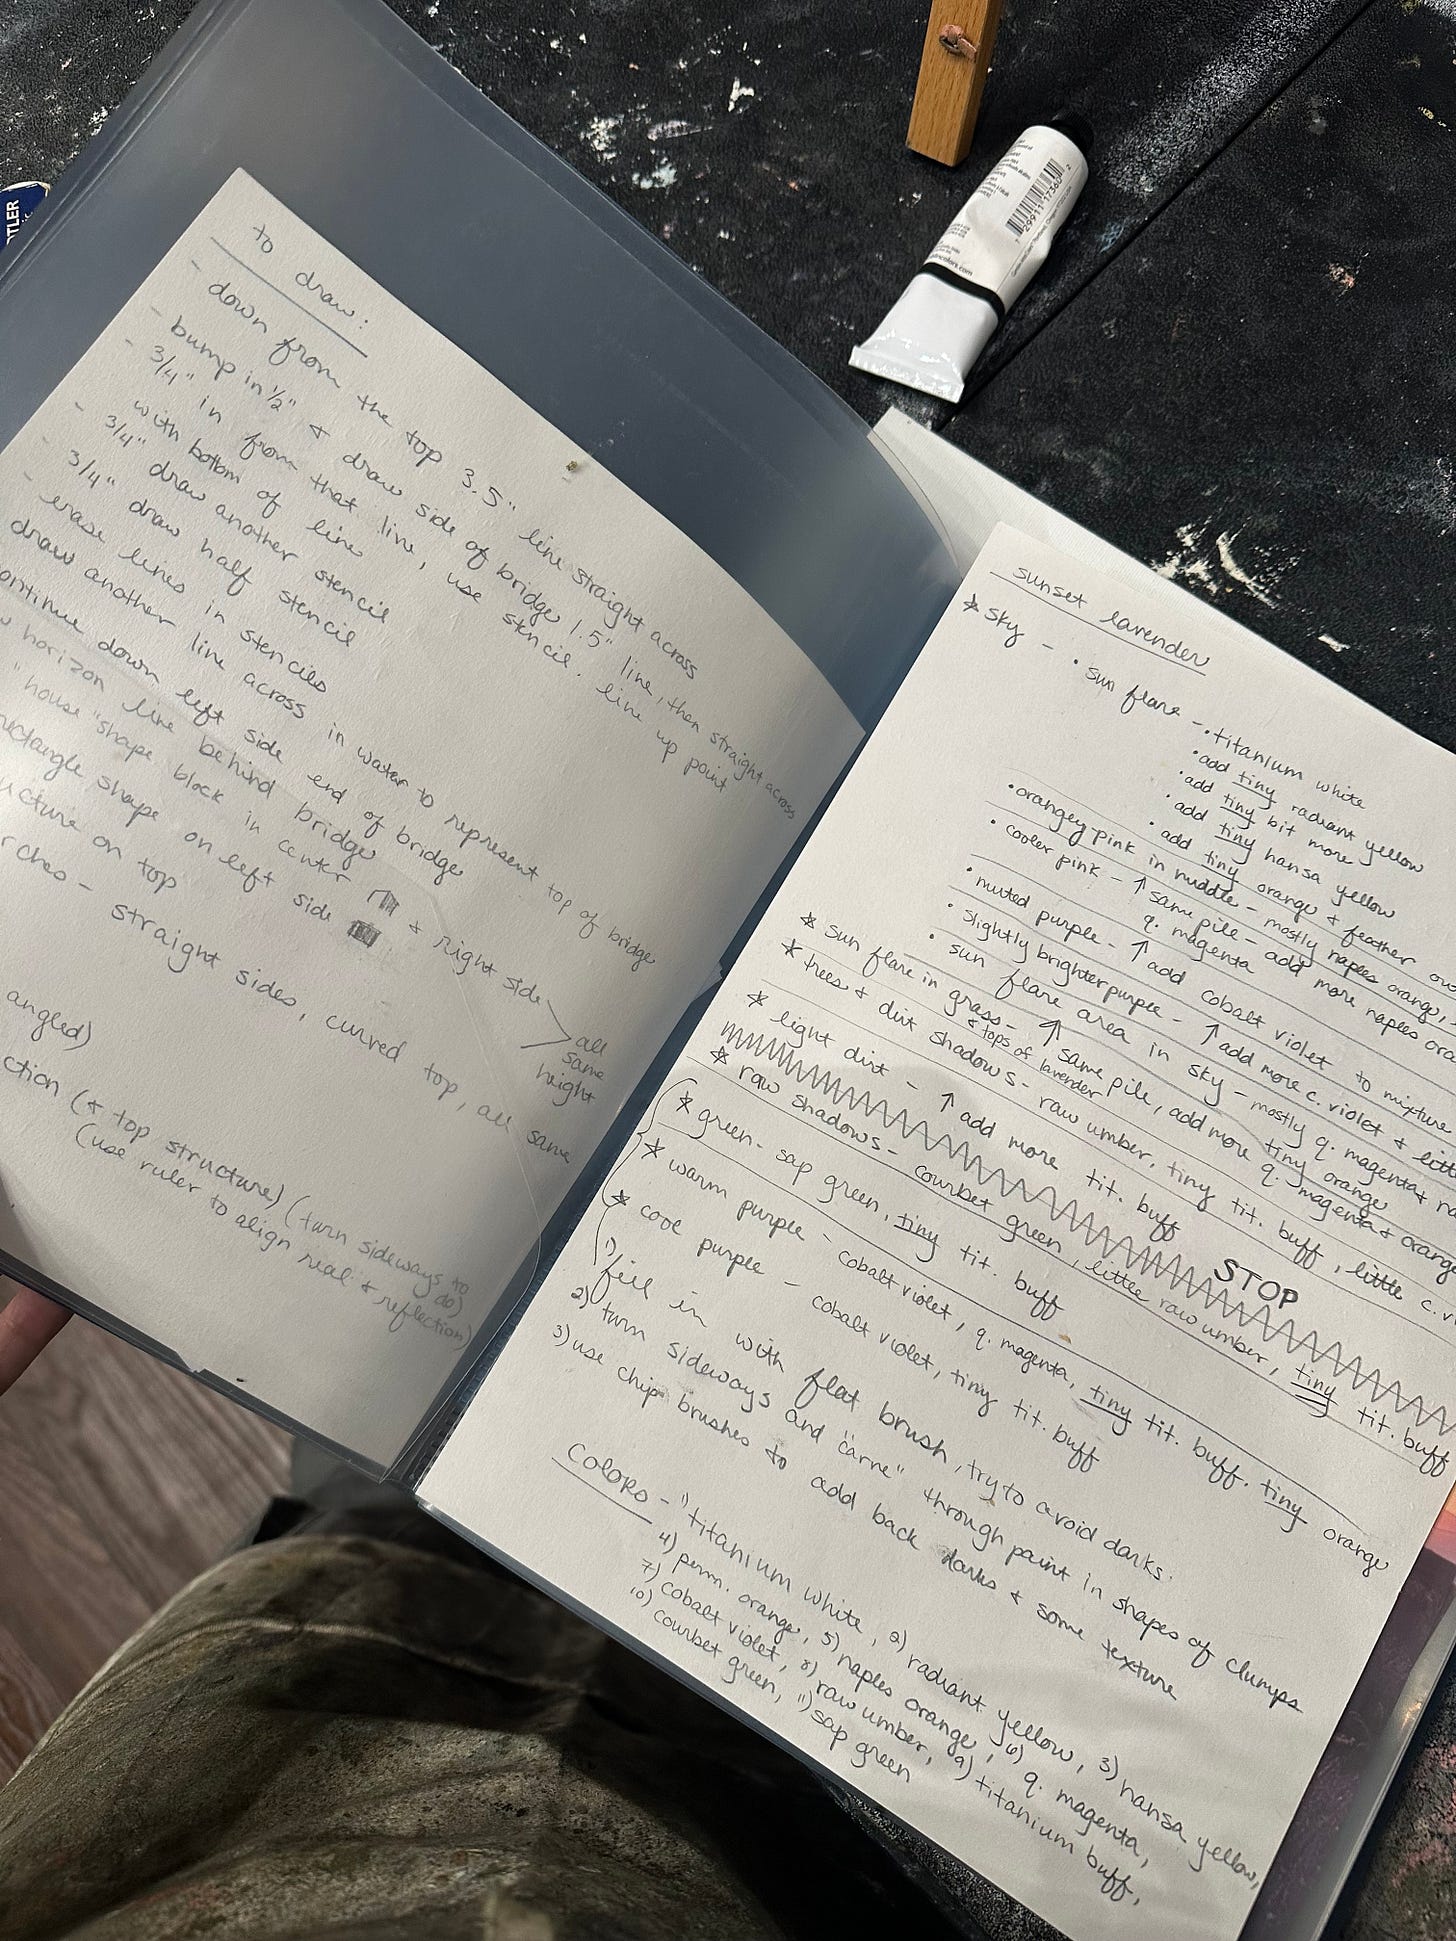 to draw:
- down from the top 3.5" line straight across
- bump in 1/2" & draw side of bridge 1.5" line, then straight across
- 3/4" in from that line, use stencil. line up point
with bottom of line
- 3/4" draw another stencil
3/4" draw half stencil
- erase lines in stencils
draw another line across in water to represent top of bridge
continue down left side end of bridge
horizon line behind bridge
"house" shape block in center + right side
rectangle shape on left side
all same height
structure on top
arches - straight sides, curved top, all same
angled)
ction (& top structure) (turn sideways to do)
(use ruler to align real & reflection)
sunset lavender
* sky - • sun flare - • titanium white
• add tiny radiant yellow
• add tiny bit more
• add tiny hansa yellow
• add tiny orange & feather
• orangey pink in middle - mostly naples orange,
• cooler pink - ↑ same pile - add more naples
q. magenta
• muted purple - ↑ add cobalt violet to mixture
• slightly brighter purple - ↑ add more c. violet &
• sun flare area in sky - mostly q. magenta &
tiny orange
* sun flare in grass - ↑ same pile, add more q. magenta & orange
& tops of lavender
* trees & dirt shadows - raw umber, tiny tit. buff, little c.
* light dirt - ↑ add more tit. buff
STOP
* raw shadows - courbet green, little raw umber, tiny tit. buff
* green - sap green, tiny tit. buff
* warm purple - cobalt violet, q. magenta, tiny tit. buff. tiny orange
* cool purple - cobalt violet, tiny tit. buff
1) fill in with flat brush, try to avoid darks.
2) turn sideways and "carve" through paint in shapes of clumps
3) use chip brushes to add back darks & some texture
Colors - 1) titanium white, 2) radiant yellow, 3) hansa yellow,
4) perm. orange, 5) naples orange, 6) q. magenta,
7) cobalt violet, 8) raw umber, 9) titanium buff,
10) courbet green, 11) sap green
7 29911 17360 2
TLER